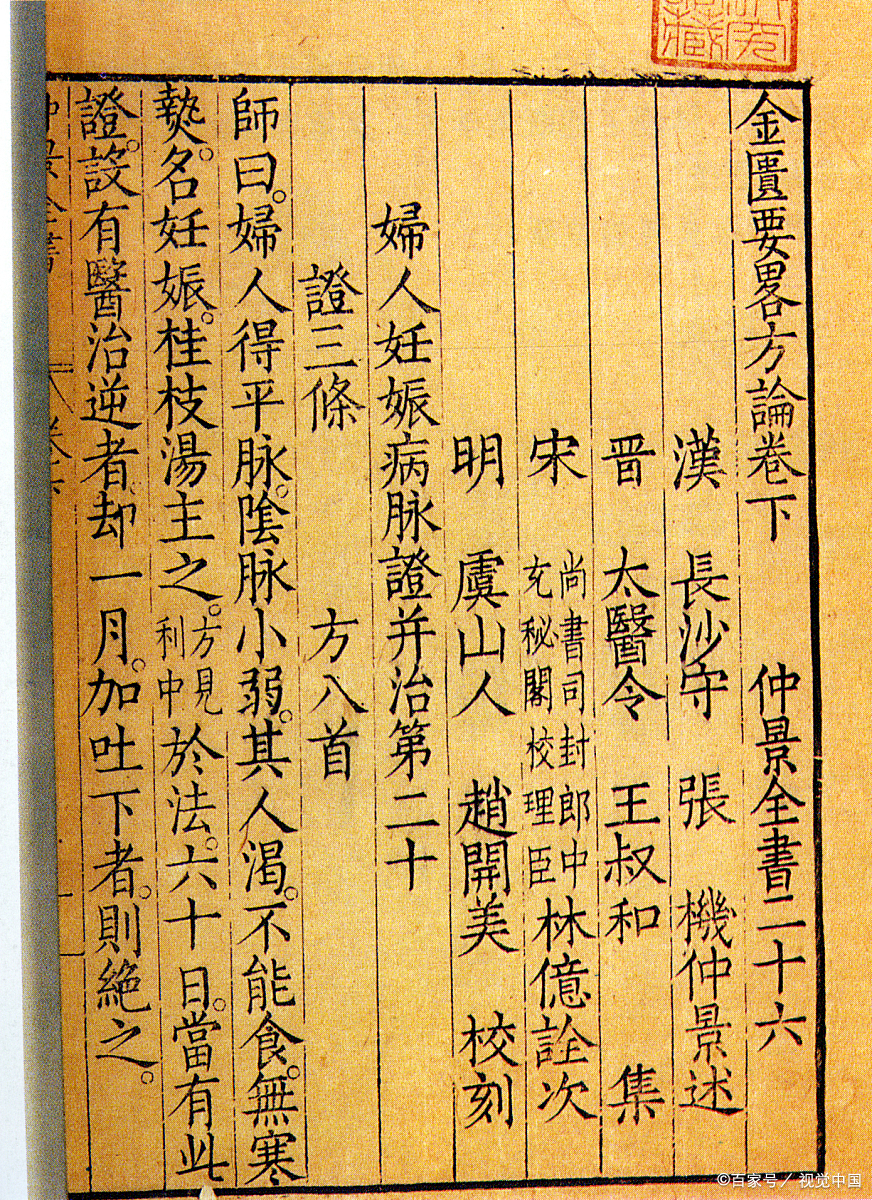 金匱要畧方論卷下 仲景全書二十六
漢 長沙守 張 機仲景述
晋 太醫令 王叔和 集
宋 尚書司封郎中充秘閣校理臣林億詮次
明 虞山人 趙開美 校刻
婦人妊娠病脉證并治第二十
證三條 方八首
師曰。婦人得平脉。隂脉小弱。其人渴。不能食。無寒
𤍠。名妊娠。桂枝湯主之。方見利中於法。六十日。當有此
證。設有醫治逆者。却一月。加吐下者。則絕之。
仲景全書
©百家号／视觉中国